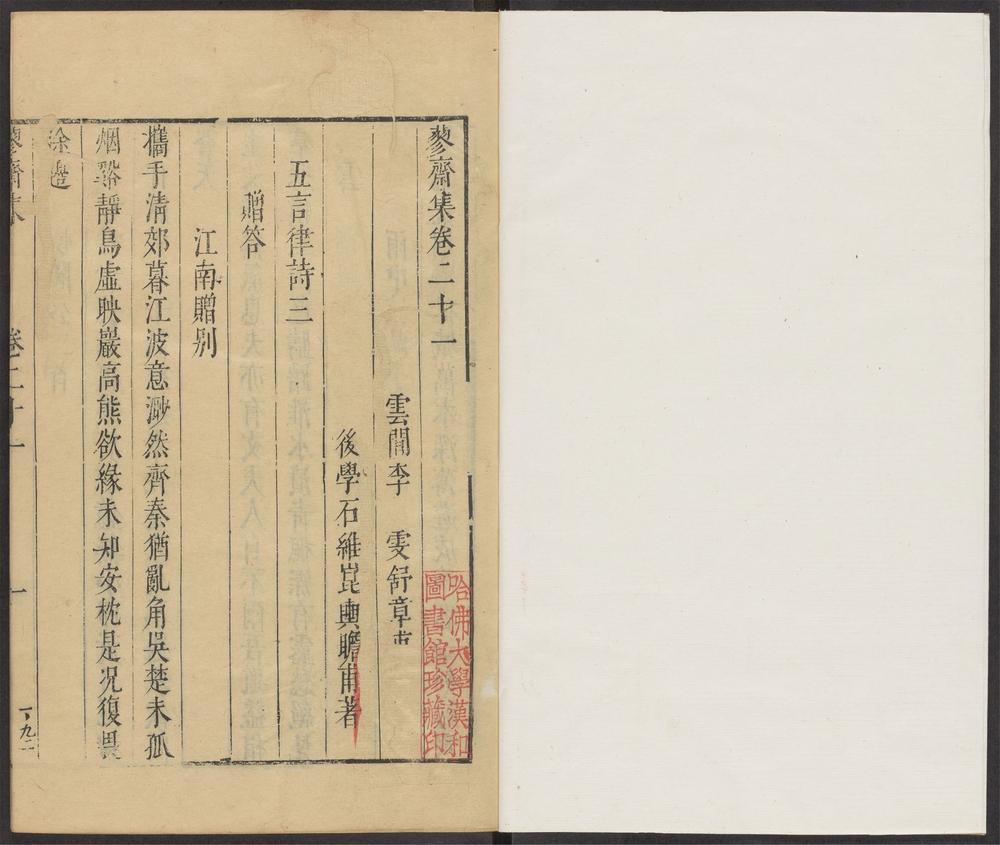 蓼齋集卷二十一
雲間李　雯舒章甫
後學石維崑輿瞻甫著
五言律詩三
贈答
江南贈別
攜手清郊暮江波意渺然齊秦猶亂角吳楚未孤
烟谿靜鳥虛映巖高熊欲緣未知安枕是況復畏
塗邊
蓼齋集　卷二十一　一
哈佛大學漢和
圖書館珍藏印